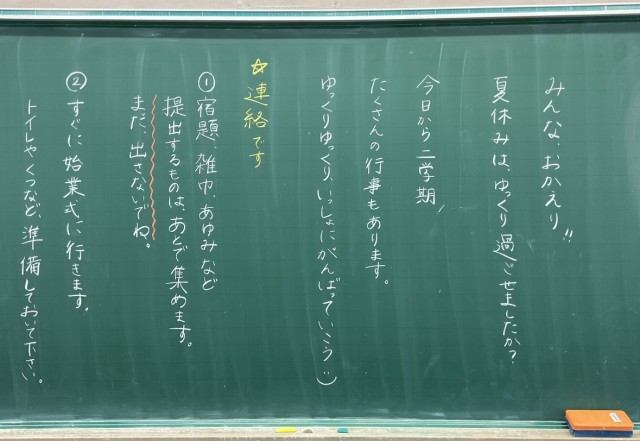 みんな、おかえり!!
夏休みは、ゆっくり過ごせましたか？
今日から二学期!
たくさんの行事もあります。
ゆっくりゆっくり、いっしょにがんばっていこう:)
☆連絡です
① 宿題、雑巾、あゆみなど
提出するものは、あとで集めます。
まだ、出さないでね。
② すぐに始業式に行きます。
トイレやくつなど、準備しておいて下さい。